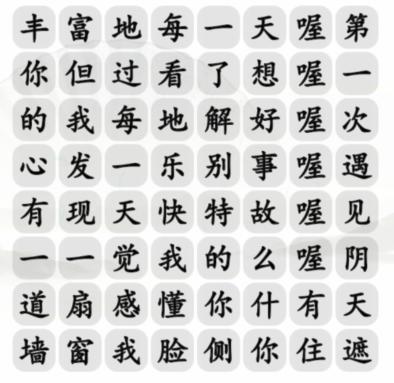 丰富地每一天喔第
你但过看了想喔一
的我每地解好喔次
心发一乐别事喔遇
有现天快特故喔见
一一觉我的么喔阴
道扇感懂你什有天
墙窗我脸侧你住遮